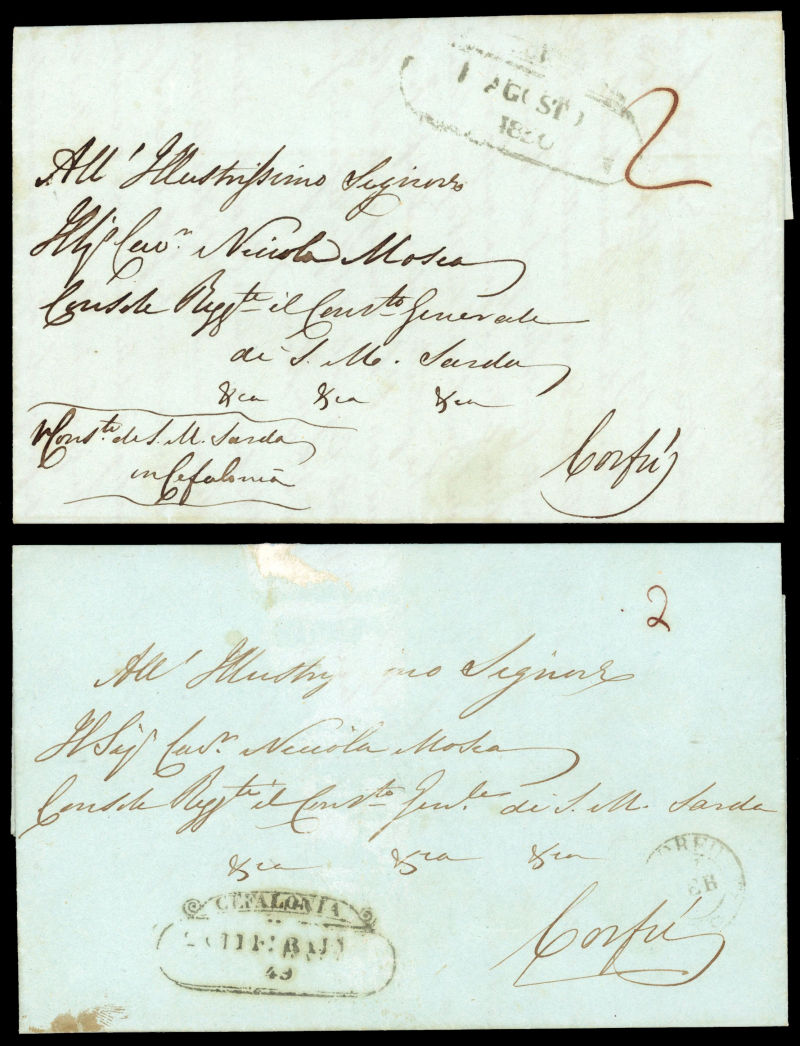 AGOSTO
2
All' Illustrissimo Signore
Il Sigr Cavr. Niccola Mosca
Console Reggte il Consto Generale
di S. M. Sarda
&ca &ca &ca
Consto di S. M. Sarda
in Cefalonia
Corfú
2
All' Illustris imo Signore
Il Sigr Cavr. Niccola Mosca
Console Reggte il Consto Genle di S. M. Sarda
&ca &ca &ca
CEFALONIA
49
Corfú